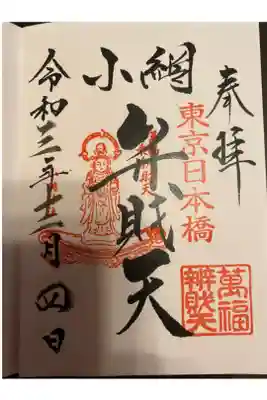 奉拝
東京日本橋
萬福
辨財天
小網
弁財天
令和三年十二月四日